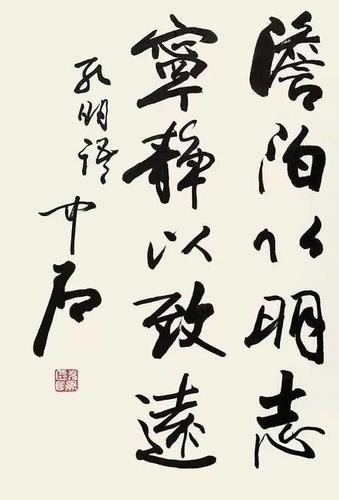 澹泊以明志
寧静以致遠
孔明語 中石